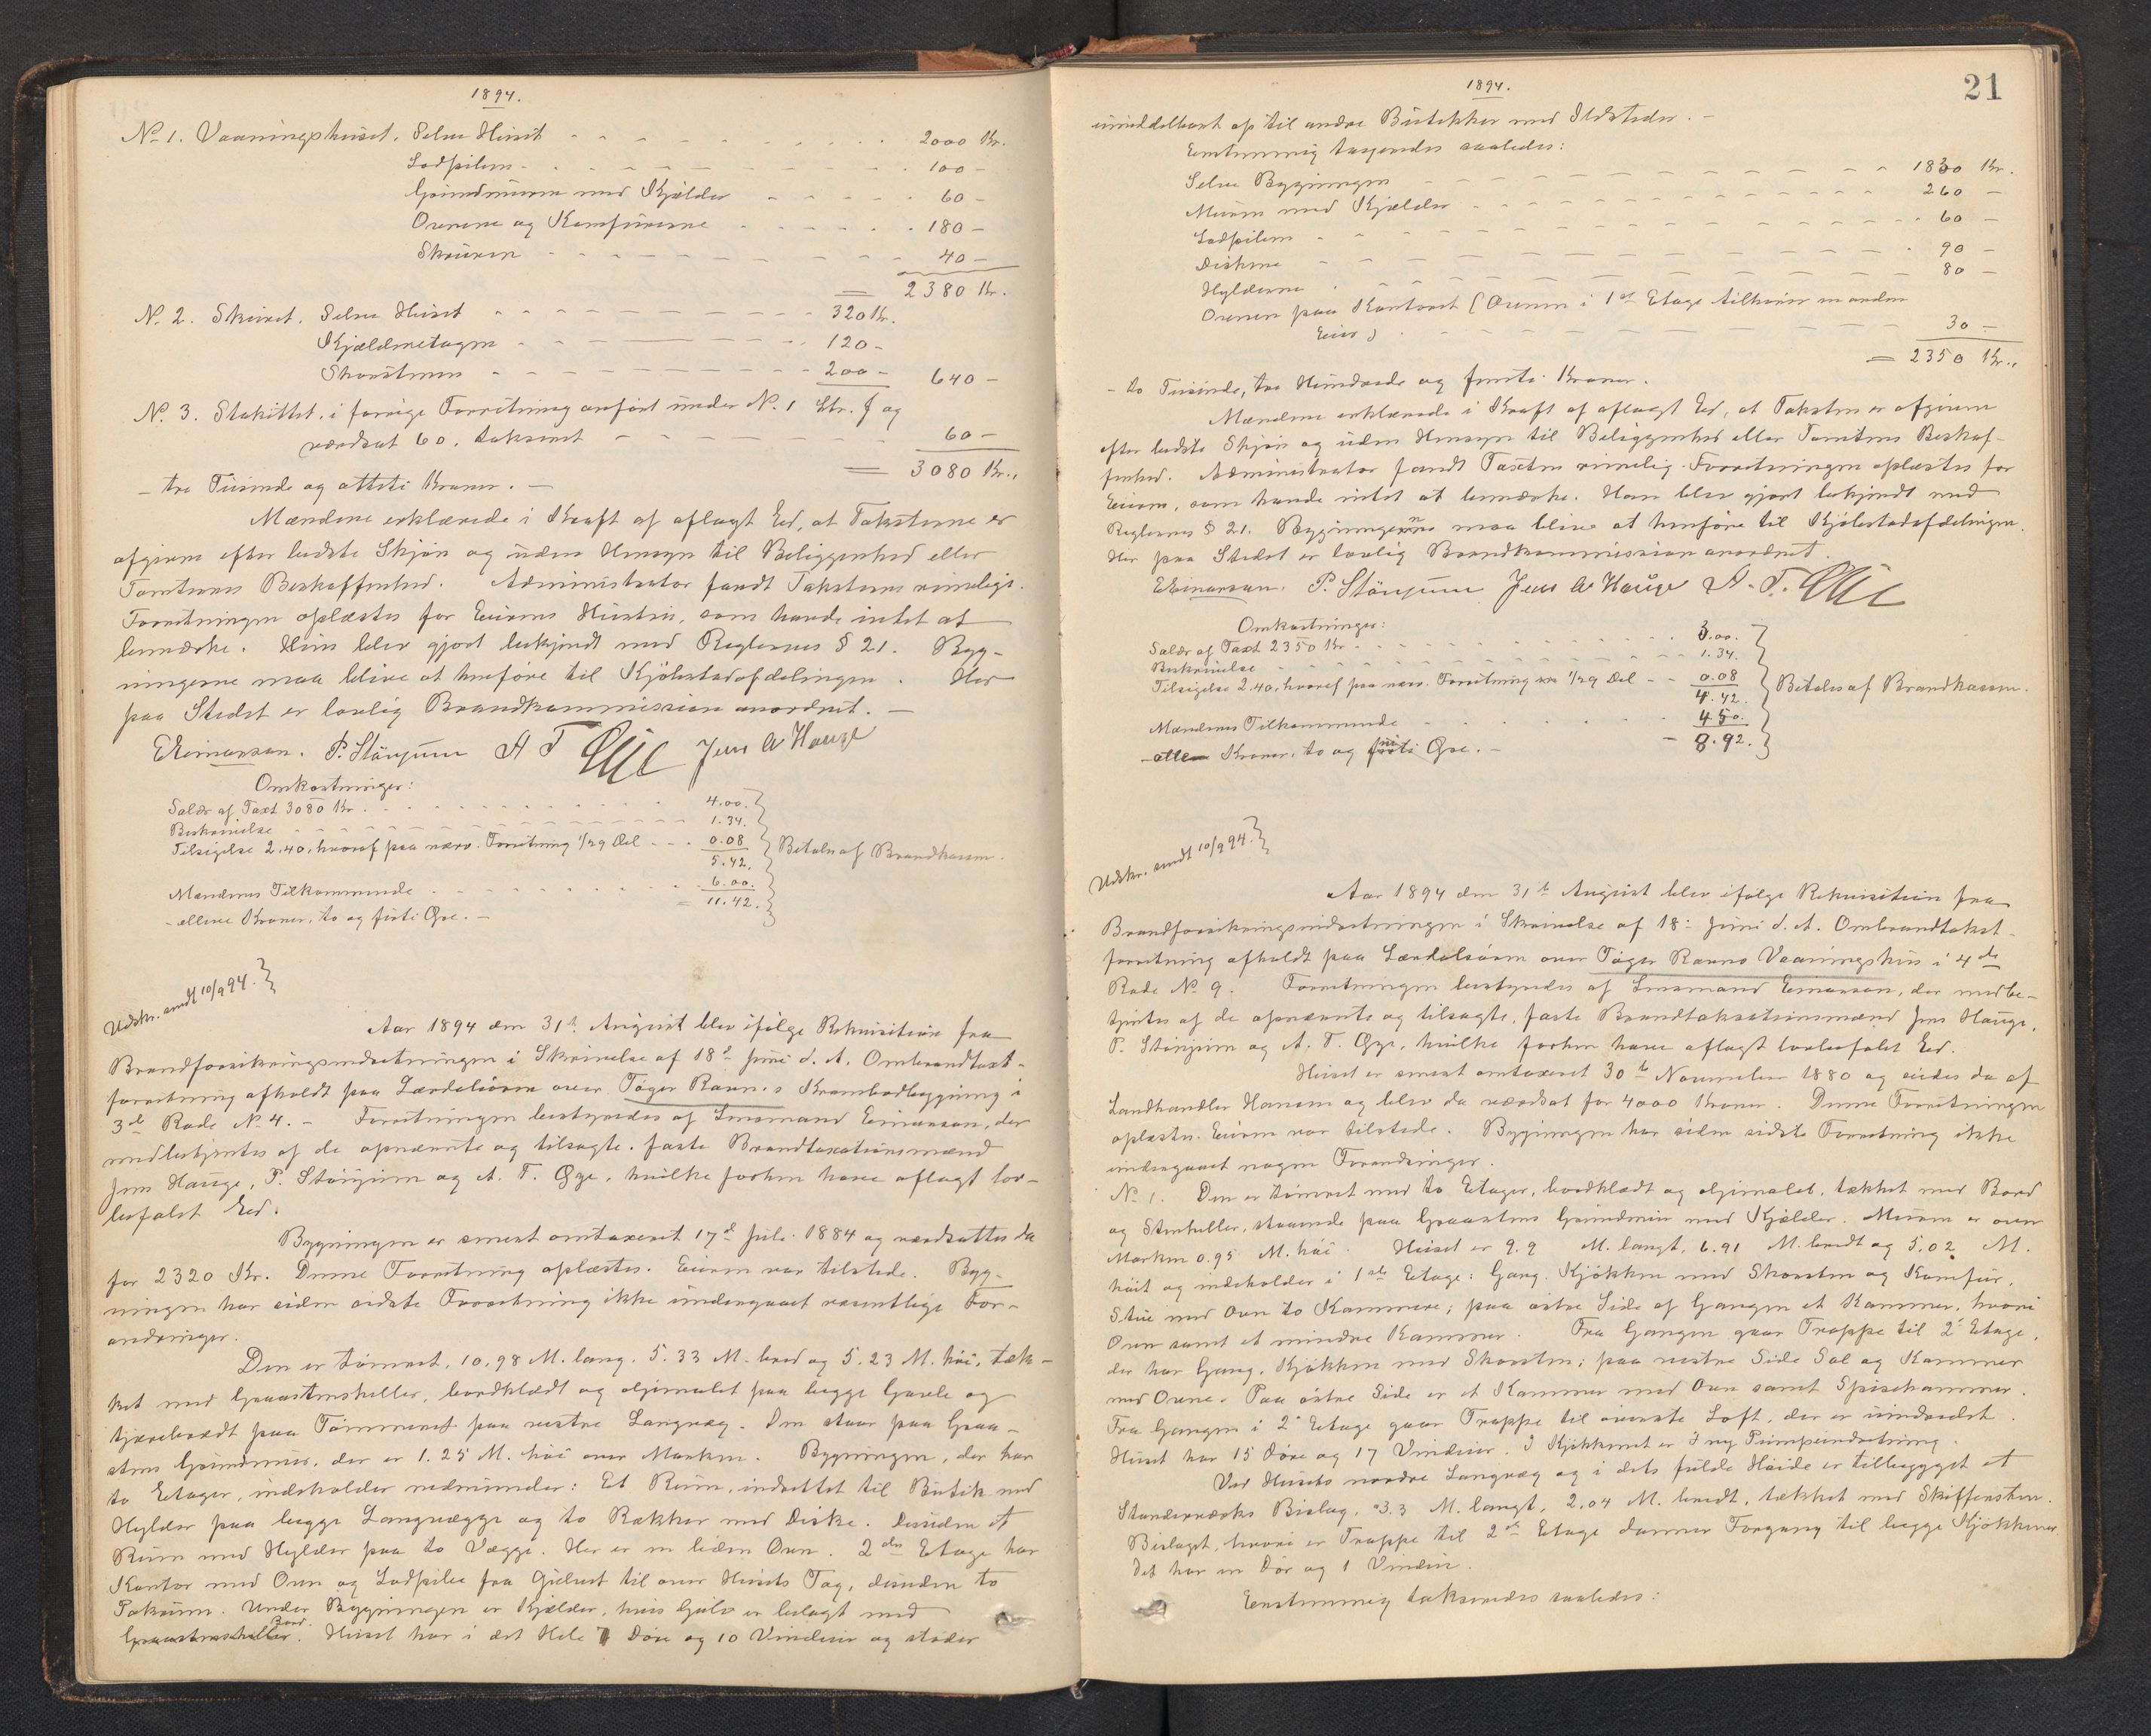 1894.
No 1. Vaaningshuset. Selve Huset 2000 Kr.
Ladpiben 100 —
Grundmuren med Kjælder 60 —
Ovnene og Komfurerne 180 —
Skuren 40 —
= 2380 Kr.
No 2. Skuret. Selve Huset 320 Kr.
Kjældernetagen 120 —
Skorstenen 200 — 640 —
No 3. Stakittet, i forrige Forretning anført under No 1 Ltr. f og
værdsat 60. taksert 60 —
= 3080 Kr.,
— tre Tusinde og otteti Kroner. —
Mændene erklærede i Kraft af aflagt Ed, at Taksterne er
afgivne efter bedste Skjøn og uden Hensyn til Beliggenhed eller
Tomternes Beskaffenhed. Administrator fandt Taksterne rimelige.
Forretningen oplæstes for Eierens Hustru, som havde intet at
bemærke. Hun blev gjort bekjendt med Reglernes § 21. Byg-
ningerne maa blive at henføre til Kjøbstadafdelingen. Her
paa Stedet er lovlig Brandkommission anordnet. —
E Einarsen. P. Stönjum A T Øye Jens A Hauge
Omkostninger:
Salær af Taxt 3080 Kr. 4.00.
Beskrivelse 1.34.
Tilsigelse 2.40, hvoraf paa nærv. Forretning 1/29 Del 0.08
5.42.
Betales af Brandkassen.
Mændenes Tilkommende 6.00.
= 11.42.
— elleve Kroner, to og firti Øre. —
Udskr. sendt 10/9 94.
Aar 1894 den 31te August blev ifølge Rekvisition fra
Brandforsikringsindretningen i Skrivelse af 18de Juni d. A. Ombrandtaxt-
forretning afholdt paa Lærdalsøren over Tøger Ravn.s Krambodbygning i
3de Rade No 4. — Forretningen bestyredes af Lensmand Einarsen, der
medbetjentes af de opnævnte og tilsagte, faste Brandtaxationsmænd
Jens Hauge, P. Stönjum og A. T. Øye, hvilke forhen have aflagt lov-
befalet Ed.
Bygningen er senest omtaxeret 17de Juli 1884 og værdsattes da
for 2320 Kr. Denne Forretning oplæstes. Eieren var tilstede. Byg-
ningen har siden sidste Forretning ikke undergaaet væsentlige For-
andringer.
Den er tømret, 10,98 M. lang, 5.33 M. bred og 5.23 M. høi, tæk-
ket med Graastensheller, bordklædt og oljemalet paa begge Gavle og
tjærebrædt paa Tømmeret paa vestre Langvæg. Den staar paa Graa-
stens Grundmur, der er 1.25 M. høi over Marken. Bygningen, der har
to Etager, indeholder nedenunder: Et Rum, indrettet til Butik med
Hylder paa begge Langvægge og to Rækker med Diske. Desuden et
Rum med Hylder paa to Vægge. Her er en liden Ovn. 2den Etage har
Kontor med Ovn og Ladpibe fra Gulvet til over Husets Tag, desuden to
Pakrum. Under Bygningen er Kjælder, hvis Gulv er belagt med
Bord.
Graastensheller. Huset har i det Hele 7 Døre og 10 Vinduer og støder
21
1894.
umiddelbart op til andre Butikker med Ildsteder. —
Eenstemmig taxeredes saaledes:
Selve Bygningen 1830 Kr.
Muren med Kjælder 260 —
Ladpiben 60 —
Diskene 90 —
Hylderne 80 —
Ovnen paa Kontoret (Ovnen i 1ste Etage tilhører en anden
Eier) 30 —
= 2350 Kr.,
— to Tusinde, tre Hundrede og femti Kroner.
Mændene erklærede i Kraft af aflagt Ed, at Taksten er afgiven
efter bedste Skjøn og uden Hensyn til Beliggenhed eller Tomtens Beskaf-
fenhed. Administrator fandt Taxten rimelig. Forretningen oplæstes for
Eieren, som havde intet at bemærke. Han blev gjort bekjendt med
Reglernes § 21. Bygningen maa blive at henføre til Kjøbstadafdelingen.
Her paa Stedet er lovlig Brandkommission anordnet.
E Einarsen. P. Stönjum Jens A Hauge A. T. Øye
Omkostninger:
Salær af Taxt 2350 Kr 3.00.
Beskrivelse 1.34.
Tilsigelse 2.40, hvoraf paa nærv. Forretning 1/29 Del 0.08
4.42.
Betales af Brandkassen.
Mændenes Tilkommende 4.50.
— 8.92.
— otte Kroner, to og niti Øre. —
Udskr. sendt 10/9 94.
Aar 1894 den 31te August blev ifølge Rekvisition fra
Brandforsikringsindretningen i Skrivelse af 18: Juni d. A. Ombrandtakst-
forretning afholdt paa Lærdalsøren over Tøger Ravns Vaaningshus i 4de
Rade No 9. Forretningen bestyredes af Lensmand Einarsen, der medbe-
tjentes af de opnævnte og tilsagte, faste Brandtaksationsmænd Jens Hauge,
P. Stönjum og A. T. Øye, hvilke forhen have aflagt lovbefalet Ed.
Huset er senest omtaxeret 30te November 1880 og eiedes da af
Landhandler Hansen og blev da værdsat for 4000 Kroner. Denne Forretningen
oplæstes. Eieren var tilstede. Bygningen har siden sidste Forretning ikke
undergaaet nogen Forandringer.
No 1. Den er tømret med to Etager, bordklædt og oljemalet, tækket med Bord
og Stenheller, staaende paa Graastens Grundmur med Kjælder. Muren er over
Marken 0.95 M. høi. Huset er 9.9 M. langt, 6.91 M. bredt og 5,02 M.
høit og indeholder i 1ste Etage: Gang, Kjøkken med Skorsten og Komfur,
Stue med Ovn to Kammere; paa østre Side af Gangen et Kammer, hvori
Ovn samt et mindre Kammer. Fra Gangen gaar Trappe til 2den Etage,
der har Gang, Kjøkken med Skorsten; paa vestre Side Sal og Kammer
med Ovne. Paa østre Side er et Kammer med Ovn samt Spisekammer.
Fra Gangen i 2den Etage gaar Trappe til øverste Loft, der er uindredet.
Huset har 15 Døre og 17 Vinduer. I Kjøkkenet er ny Pumpeindretning.
Ved Husets nordre Langvæg og i dets fulde Høide er tilbygget et
Standerværks Bislag, 3.3 M. langt, 2,04 M. bredt, tækket med Skifferstein.
Bislaget, hvori er Trappe til 2den Etage danner Forgang til begge Kjøkkener.
Det har en Dør og 1 Vindu.
Eenstemmig takseredes saaledes: